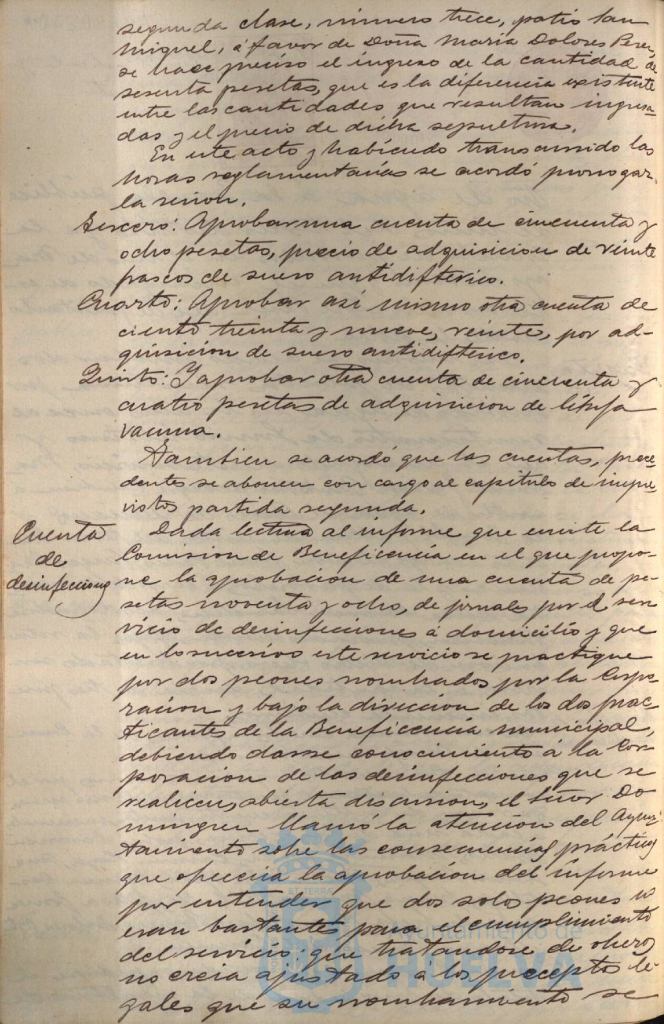 segunda clase, número trece, patio San
Miguel, á favor de Doña Maria Dolores Perez, de
se hace preciso el ingreso de la cantidad
sesenta pesetas, que es la diferencia existente
entre las cantidades que resultan ingresa-
das y el precio de dicha sepultura.
En este acto y habiendo transcurrido las
horas reglamentarias se acordó prorrogar
la sesion.
Tercero: Aprobar una cuenta de cincuenta y
ocho pesetas, precio de adquisicion de veinte
frascos de suero antidifterico.
Cuarto: Aprobar asi mismo otra cuenta de
ciento treinta y nueve, veinte, por ad-
quisicion de suero antidifterico.
Quinto: Y aprobar otra cuenta de cincuenta y
cuatro pesetas de adquisicion de linfa
vacuna.
Tambien se acordó que las cuentas, prece-
dentes se abonen con cargo al capitulo de impre-
vistos partida segunda.
Cuenta
de
desinfecciones
Dada lectura al informe que emite la
Comision de Beneficencia en el que propo-
ne la aprobacion de una cuenta de pe-
setas noventa y ocho, de jornales por el ser-
vicio de desinfecciones á domicilio y que
en lo sucesivo este servicio se practique
por dos peones nombrados por la Corpo-
racion y bajo la direccion de los dos prac-
ticantes de la Beneficencia municipal,
debiendo darse conocimiento a la Cor-
poracion de las desinfecciones que se
realicen, abierta discusion, el Señor Do
minguez llamó la atencion del Ayun-
tamiento sobre las consecuencias prácticas
que ofrecia la aprobacion del informe
por entender que dos solos peones no
eran bastantes para el cumplimiento
del servicio; que tratandose de obreros
no creia ajustado á los preceptos le-
gales que su nombramiento se
Ayuntamiento de
HUELVA